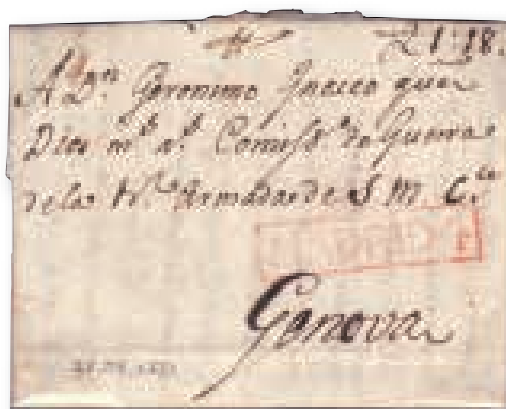 1:18.
A Dn. Geronimo Ignacio que
Dios ms. as. Comisso. de Guerra
delas Rs. Armadas de S. M. Cca.
Genova